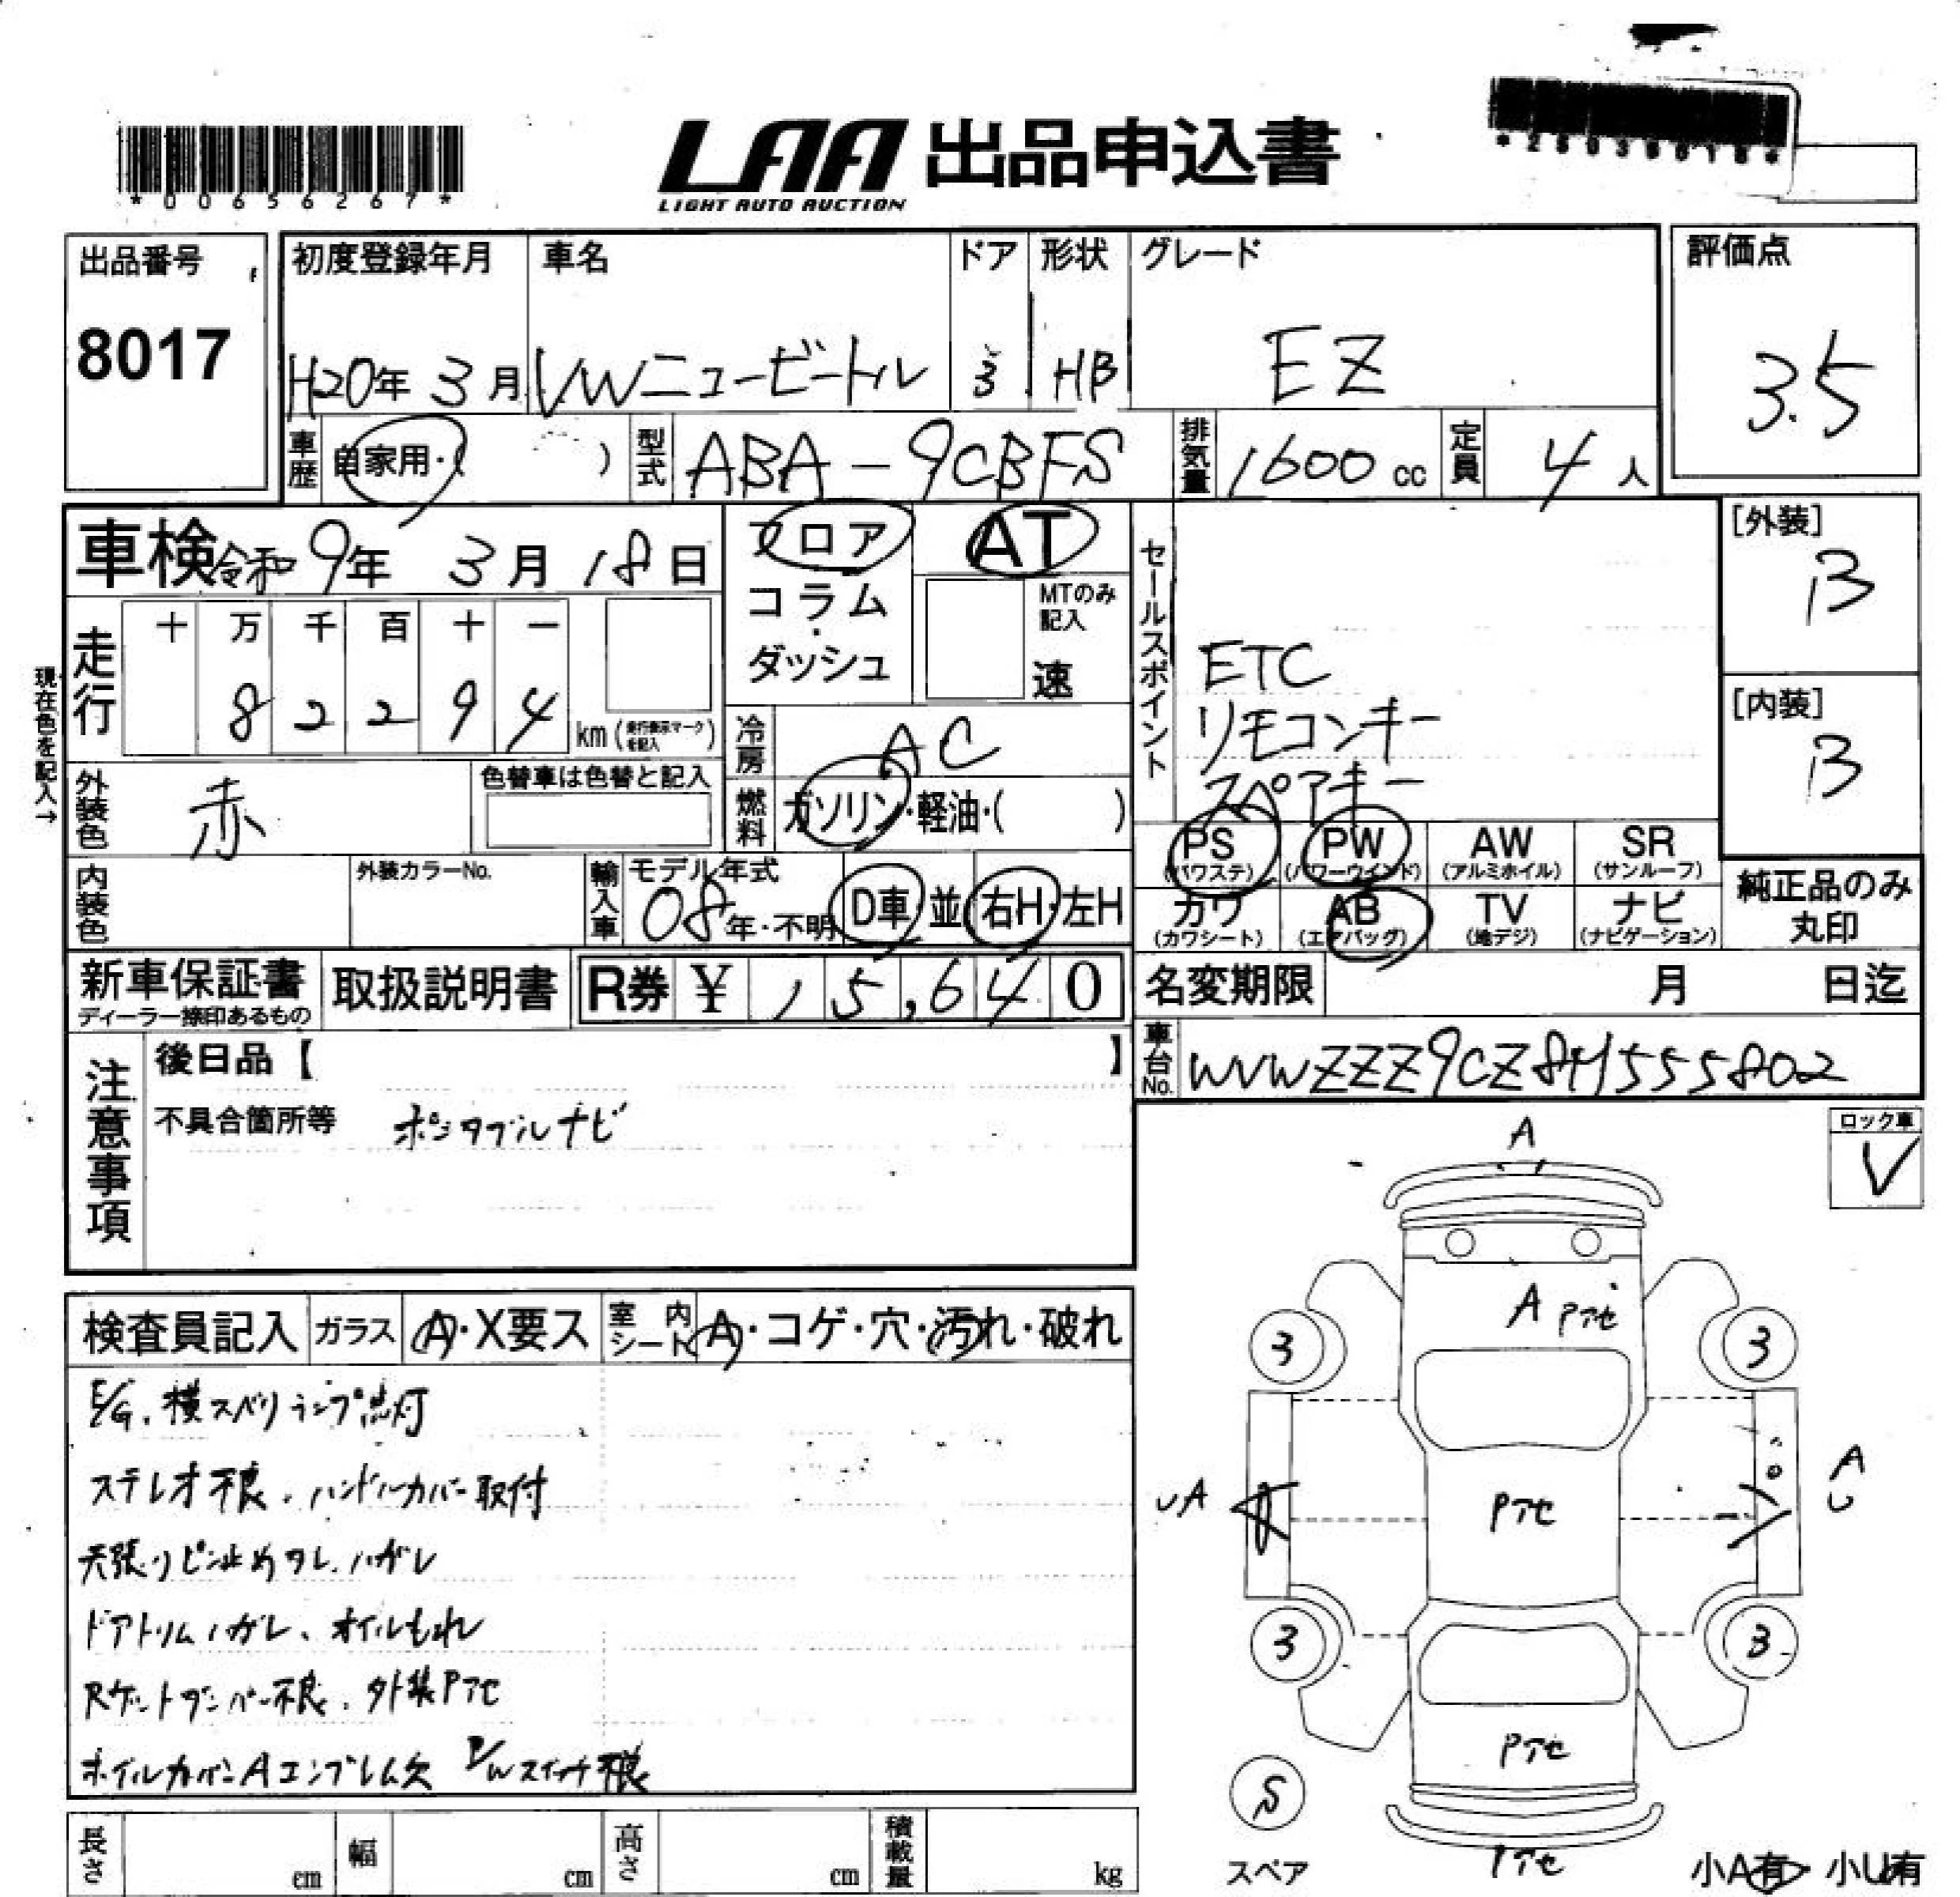 *00656267*
LAA 出品申込書
LIGHT AUTO AUCTION
出品番号
8017
初度登録年月
H20年 3月
車名
VWニュービートル
ドア
3
形状
HB
グレード
EZ
評価点
3.5
車歴
自家用・( )
型式
ABA-9CBFS
排気量
1600 cc
定員
4 人
車検 令和 9年 3月 18日
フロア
コラム・
ダッシュ
AT
MTのみ
記入
速
セールスポイント
ETC
リモコンキー
スペアキー
[外装]
B
[内装]
B
現在色を記入→
走行
十 万 千 百 十 一
8 2 2 9 4 km (走行表示マークを記入)
冷房
AC
外装色
赤
色替車は色替と記入
燃料
ガソリン・軽油・( )
PS
(パワステ)
PW
(パワーウインド)
AW
(アルミホイル)
SR
(サンルーフ)
カワ
(カワシート)
AB
(エアバッグ)
TV
(地デジ)
ナビ
(ナビゲーション)
純正品のみ
丸印
内装色
外装カラーNo.
輸入車
モデル年式
08年・不明
D車・並
右H・左H
新車保証書
ディーラー捺印あるもの
取扱説明書
R券 ¥ 15,640
名変期限 月 日迄
車台No.
WVWZZZ9CZ8M555802
注意事項
後日品【 】
不具合箇所等 ポータブルナビ
ロック車
V
検査員記入
ガラス
A・X要ス
室内シート
A・コゲ・穴・汚れ・破れ
E/G、横スベリランプ点灯
ステレオ不良、ハンドルカバー取付
天張りピン止めタレ、ハガレ
ドアトリムハガレ、オイルもれ
Rゲートダンパー不良、外装Pアセ
ホイルカバーAエンブレム欠 P/Wスイッチ不良
A
A Pアセ
3
3
UA
Pアセ
A
U
3
3
Pアセ
S
スペア
Pアセ
小A有 小U有
長さ cm
幅 cm
高さ cm
積載量 kg